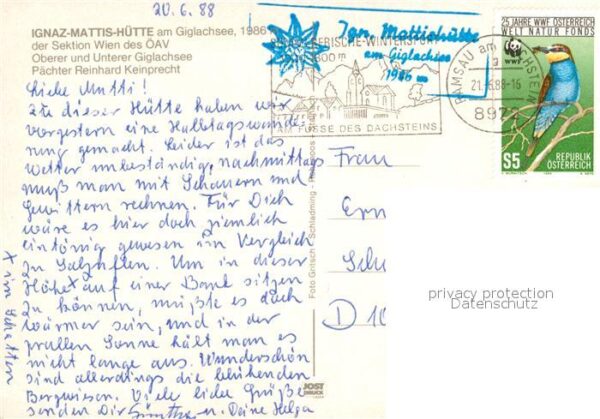 20.6.88
IGNAZ-MATTIS-HÜTTE am Giglachsee, 1986
der Sektion Wien des ÖAV
Oberer und Unterer Giglachsee
Pächter Reinhard Keinprecht
Ign. Mattishütte
am Giglachsee
1986 m
AM FUSSE DES DACHSTEINS
RAMSAU am DACHSTEIN
21.-6.88-16
8972
25 JAHRE WWF ÖSTERREICH
WELT NATUR FONDS
WWF
S5
REPUBLIK
ÖSTERREICH
Liebe Mutti!
Zu dieser Hütte haben wir
vorgestern eine Halbtagswande-
rung gemacht. Leider ist das
Wetter unbeständig, nachmittags
muß man mit Schauern und
Gewittern rechnen. Für Dich
wäre es hier doch ziemlich
eintönig gewesen im Vergleich
zu Salzuflen. Um in dieser
Höhe x auf einer Bank sitzen
zu können, müßte es doch
wärmer sein, und in der
prallen Sonne hält man es
nicht lange aus. Wunderschön
sind allerdings die blühenden
Bergwiesen. Viele liebe Grüße
senden Dir Günther u. Deine Helga
x im Schatten
Foto Gritsch - Schladming - Ramsau
JOST
DRUCK
Frau
Ern
Schu
D 10
privacy protection
Datenschutz